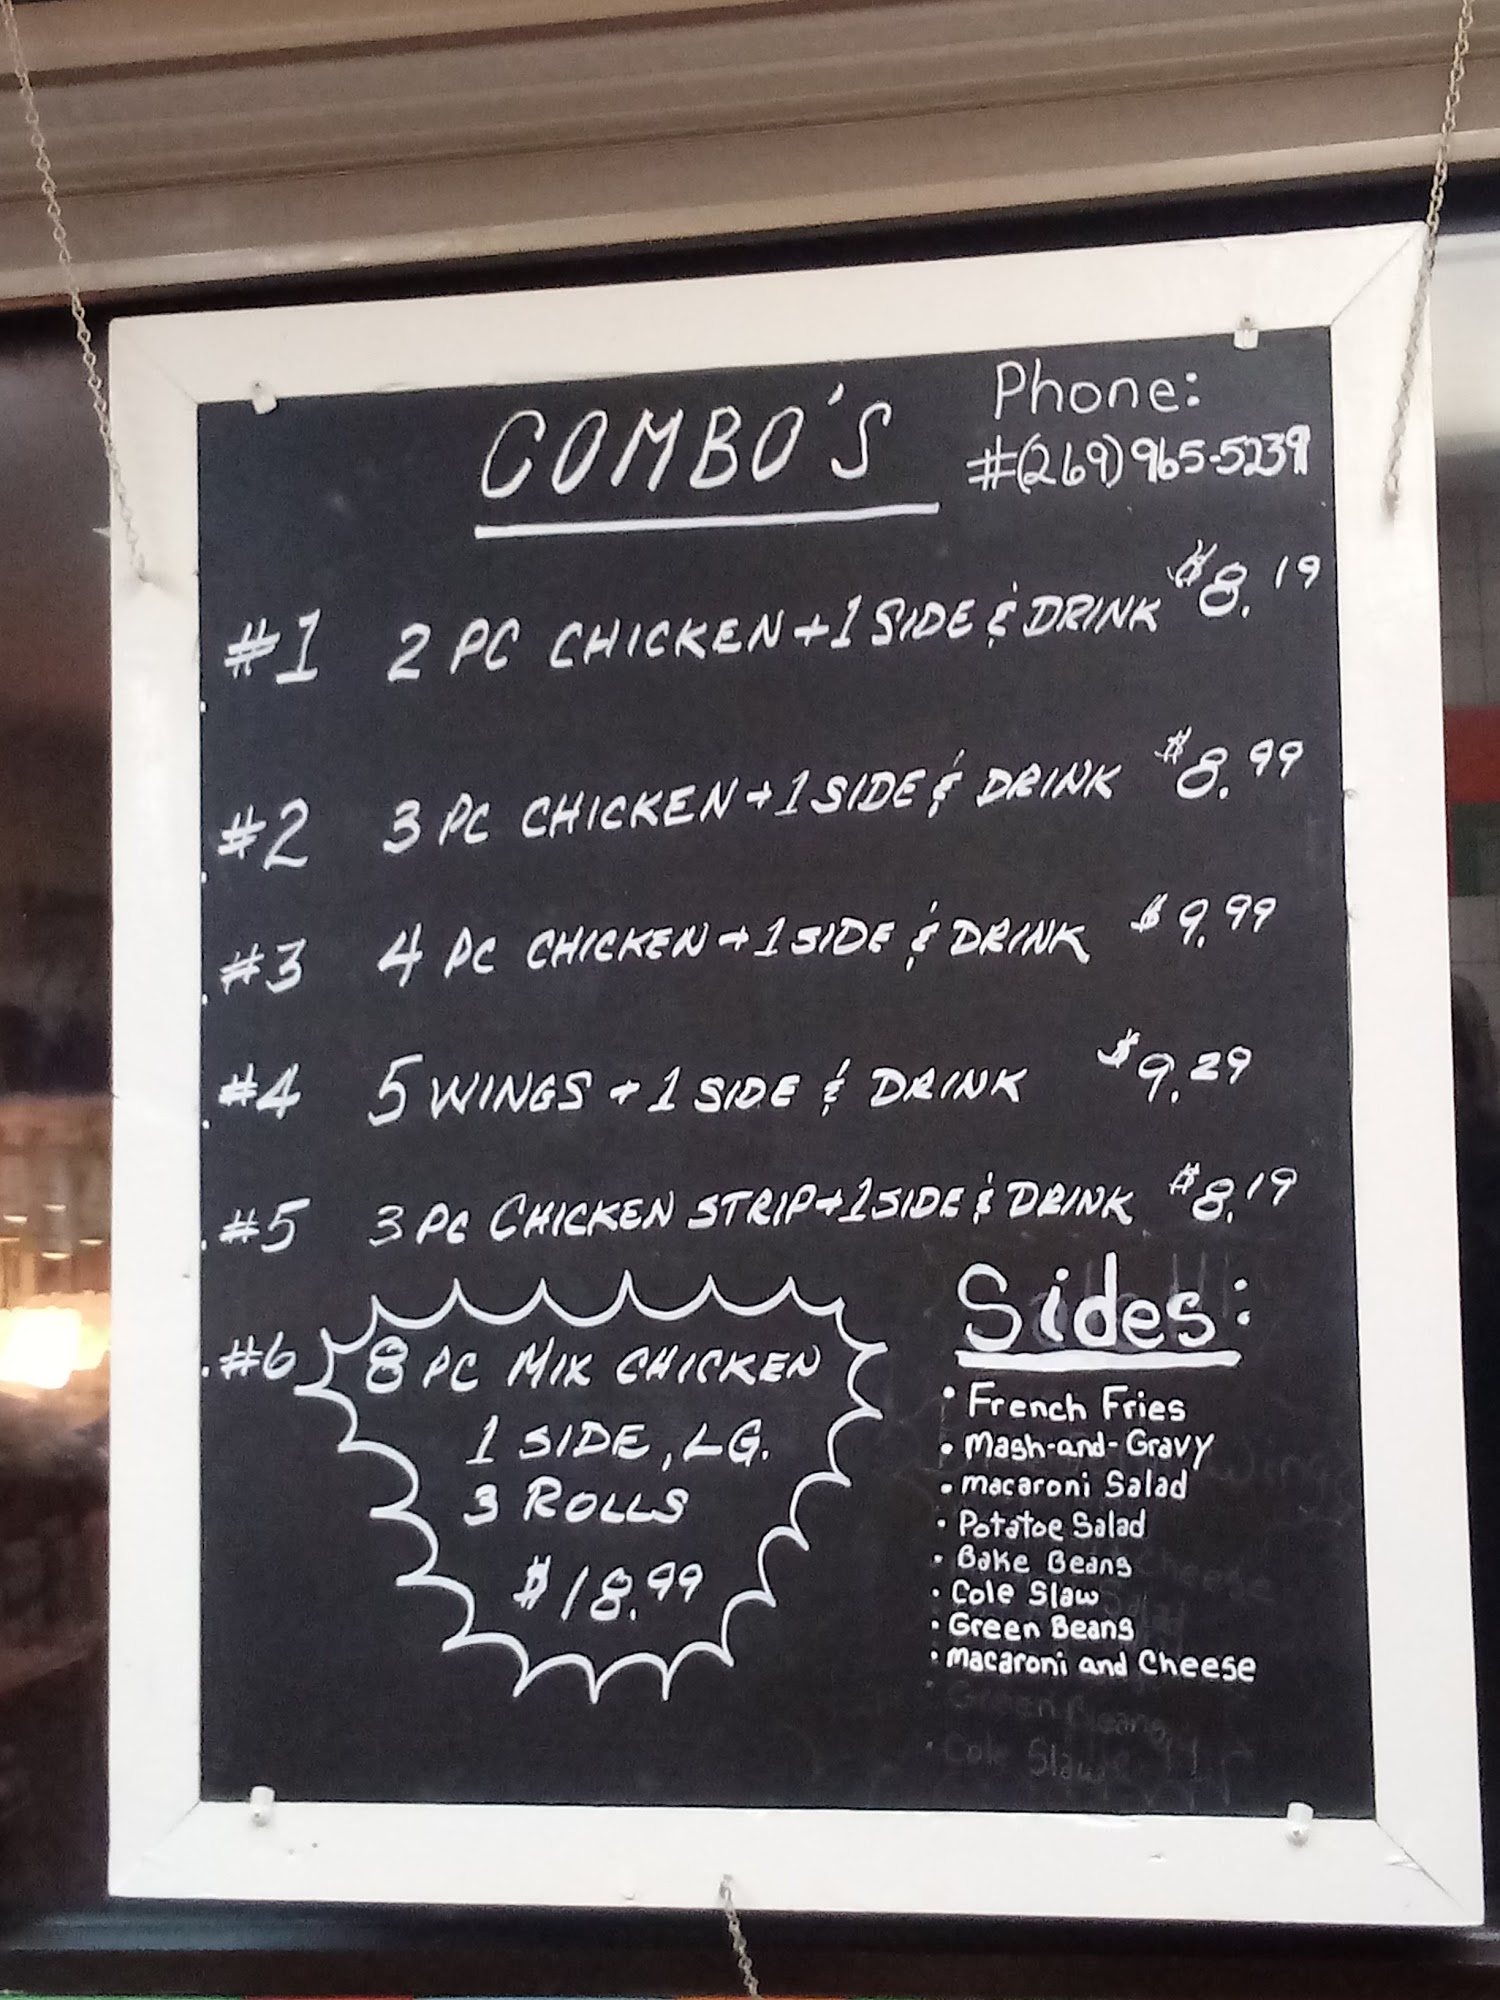 COMBO'S
Phone:
#(269) 965-5239
#1 2 PC CHICKEN + 1 SIDE & DRINK $8.19
#2 3 PC CHICKEN + 1 SIDE & DRINK $8.99
#3 4 PC CHICKEN + 1 SIDE & DRINK $9.99
#4 5 WINGS + 1 SIDE & DRINK $9.29
#5 3 PC CHICKEN STRIP + 1 SIDE & DRINK $8.19
#6 8 PC MIX CHICKEN
1 SIDE, LG.
3 ROLLS
$18.99
Sides:
• French Fries
• Mash-and-Gravy
• Macaroni Salad
• Potatoe Salad
• Bake Beans
• Cole Slaw
• Green Beans
• Macaroni and Cheese
• Green Beans
• Cole Slaw